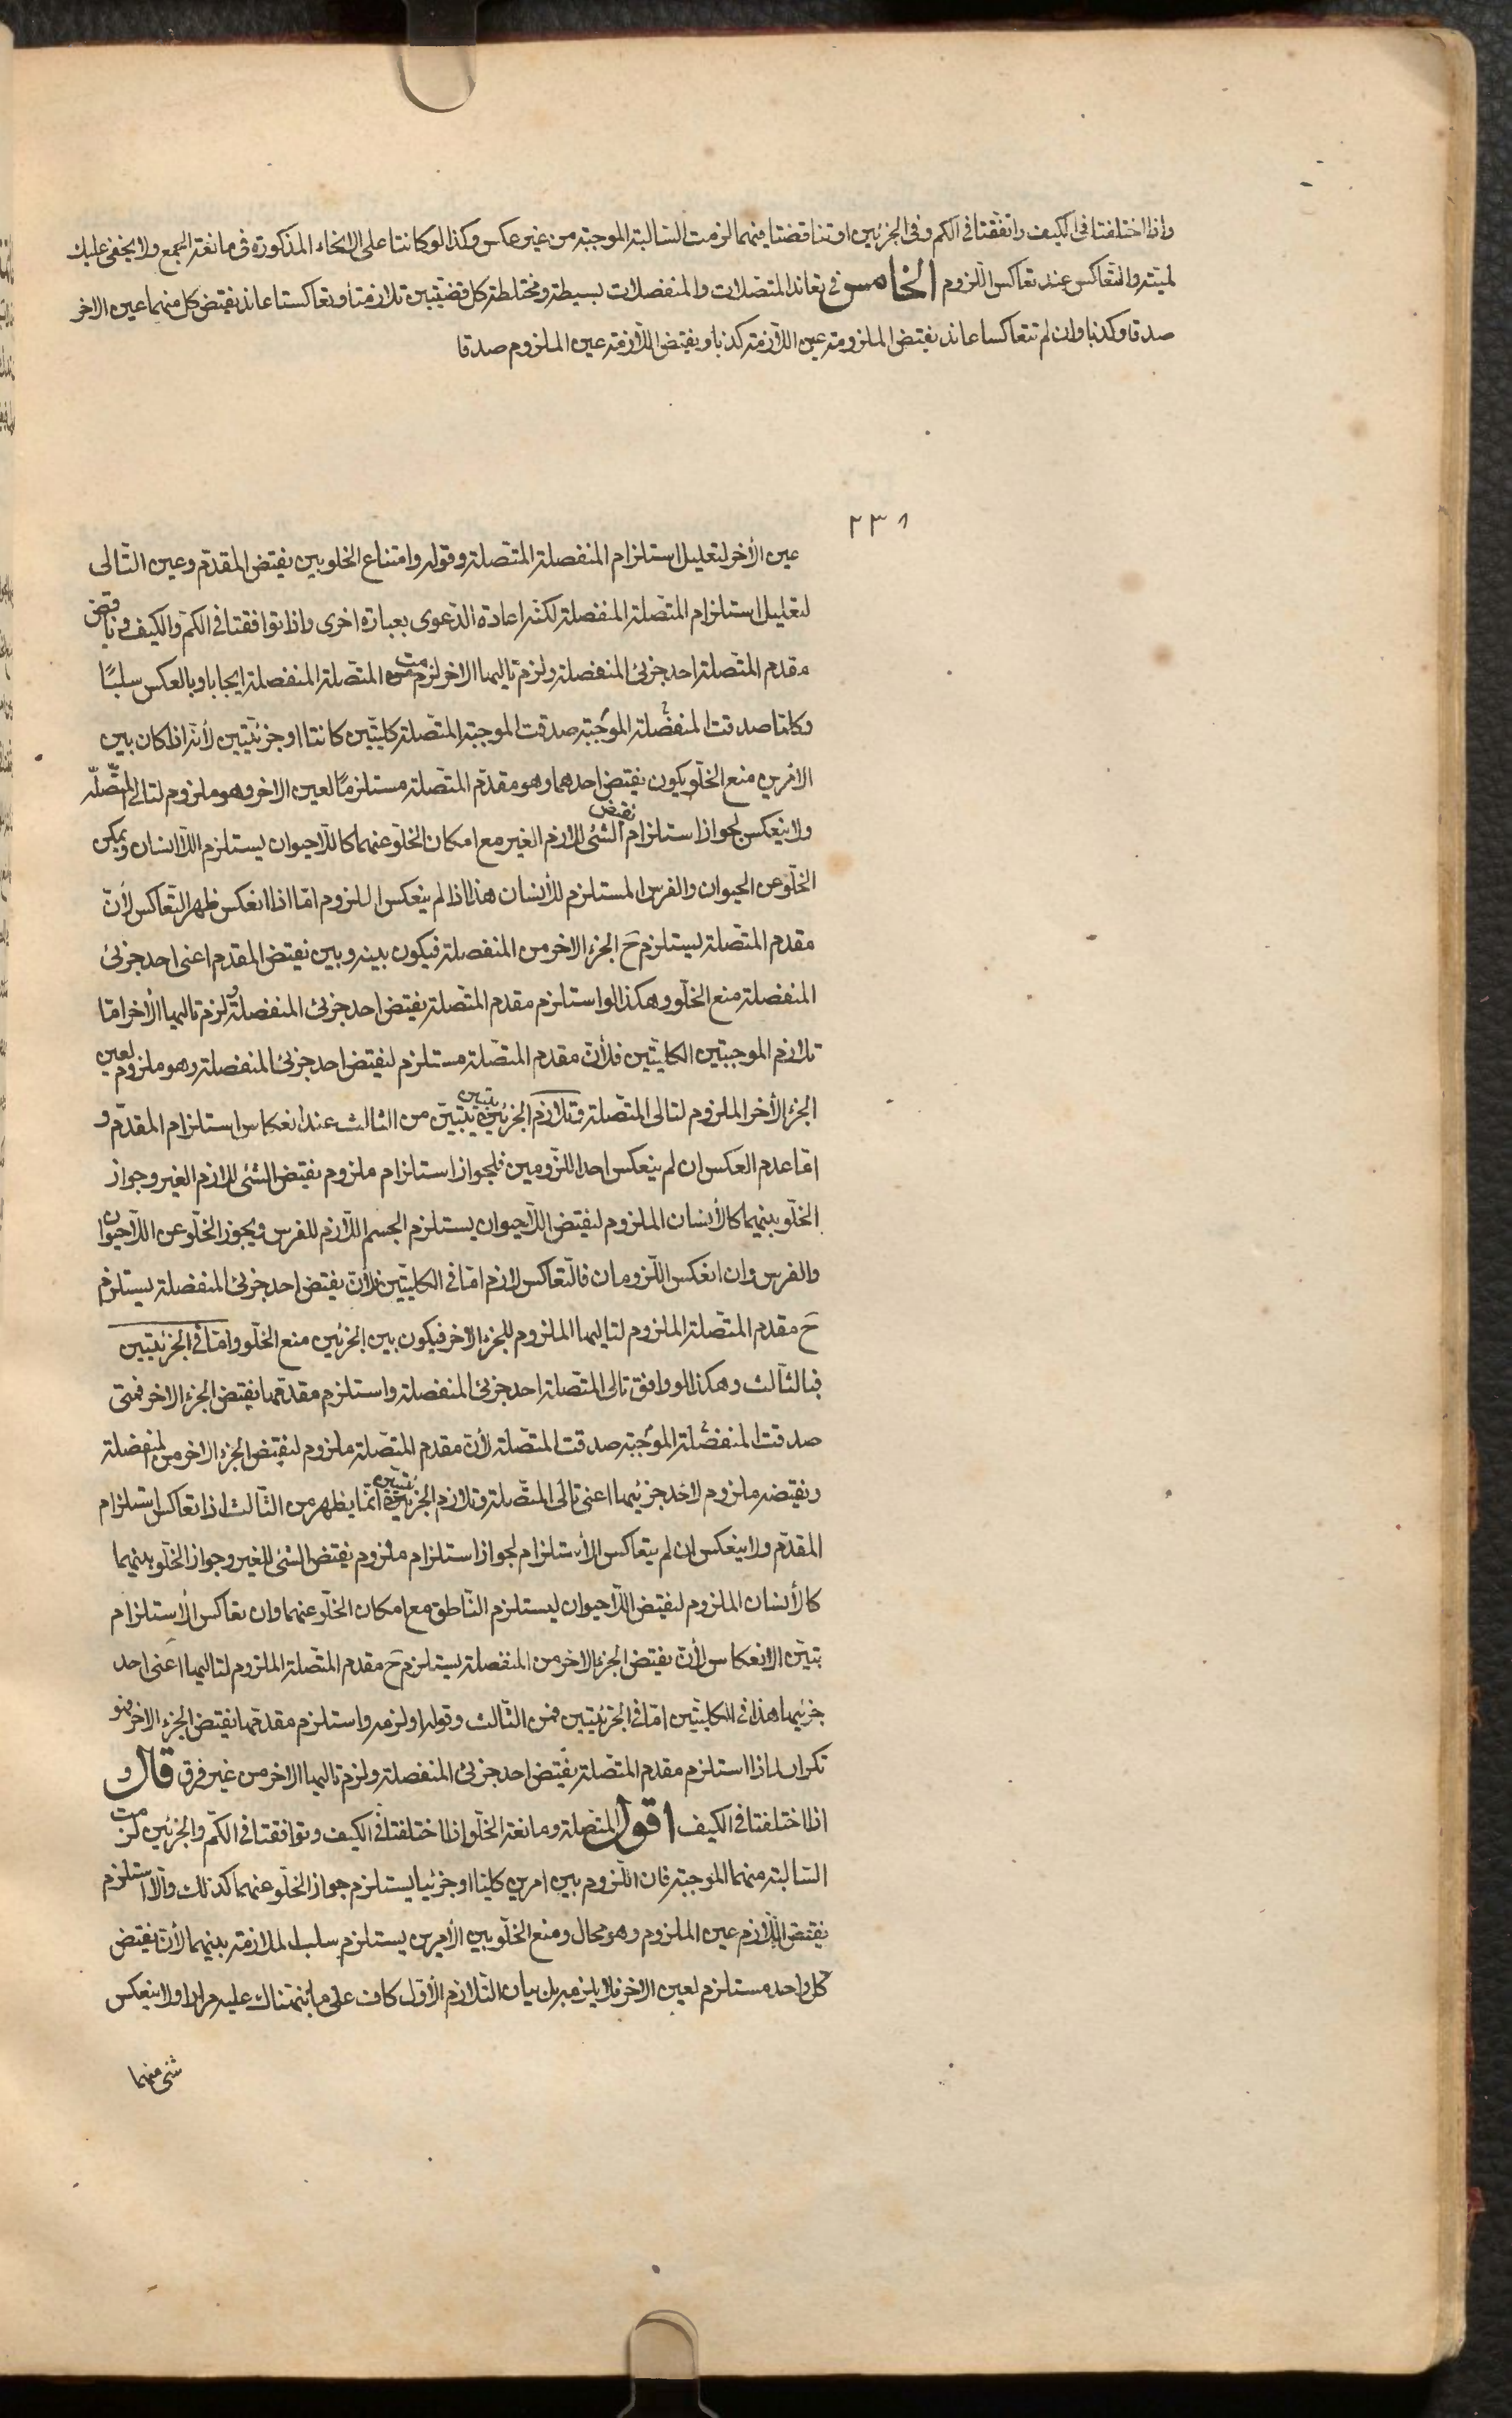 واذا اختلفتا فى الكيف واتفقتا فى الكم وفى الجزئين او تناقضتا فيهما لزمت السالبة الموجبة من غير عكس وكذا لو كانتا على الانحاء المذكورة فى مانعة الجمع ولا يخفى عليك
لميته والتعاكس عند تعاكس اللزوم الخامس فى تعاند المتصلات والمنفصلات بسيطة ومختلطة كل قضيتين تلازمتا وتعاكستا عاند نقيض كل منهما عين الاخر
صدقا وكذبا وان لم تتعاكسا عاند نقيض الملزومة عين اللازمة كذبا ونقيض اللازمة عين الملزوم صدقا
٢٣٨
عين الأخر لتعليل استلزام المنفصلة المتصلة وقوله وامتناع الخلو بين نقيض المقدّم وعين التّالى
لتعليل استلزام المتصلة المنفصلة لكنه اعادة الدّعوى بعبارة اخرى واذا توافقتا فى الكم والكيف وناقض
مقدم المتصلة احد جزئى المنفصلة ولزم تاليها الاخر لزمت المتصلة المنفصلة ايجابا وبالعكس سلبًا
وكلما صدقت المنفصلة الموجبة صدقت الموجبة المتصلة كليّتين كانتا او جزئيّتين لأنه اذا كان بين
الامرين منع الخلو يكون نقيض احدهما وهو مقدّم المتصلة مستلزمًا لعين الاخر وهو ملزوم لتالى المتّصلة
ولا ينعكس لجواز استلزام نقيض الشئ لازم الغير مع امكان الخلو عنهما كاللاحيوان يستلزم اللا انسان ويمكن
الخلو عن الحيوان والفرس المستلزم للاانسان هذا اذا لم ينعكس اللزوم امّا اذا انعكس ظهر التّعاكس لأنّ
مقدم المتصلة يستلزم ح الجزء الاخر من المنفصلة فيكون بينه وبين نقيض المقدم اعنى احد جزئى
المنفصلة منع الخلو وهكذا لو استلزم مقدم المتصلة نقيض احد جزئى المنفصلة ولزم تاليها الأخر امّا
تلازم الموجبتين الكليّتين فلأن مقدم المتصلة مستلزم لنقيض احد جزئى المنفصلة وهو ملزوم لعين
الجزء الأخر الملزوم لتالى المتصلة وتلازم الجزئيتين يتبيّن من الثالث عند انعكاس استلزام المقدّم و
امّا عدم العكس ان لم ينعكس احد اللزومين فلجواز استلزام ملزوم نقيض الشئ لازم الغير وجواز
الخلو بينهما كالأنسان الملزوم لنقيض اللاحيوان يستلزم الجسم اللازم للفرس ويجوز الخلو عن اللاحيوان
والفرس وان انعكس اللزومان فالتعاكس لازم امّا فى الكليّتين فلأن نقيض احد جزئى المنفصلة يستلزم
ح مقدم المتصلة الملزوم لتاليها الملزوم للجزء الاخر فيكون بين الجزئين منع الخلو وامّا فى الجزئيّتين
فبالثالث وهكذا لو وافق تالى المتصلة احد جزئى المنفصلة واستلزم مقدمها نقيض الجزء الاخر فمتى
صدقت المنفصلة الموجبة صدقت المتصلة لأن مقدم المتصلة ملزوم لنقيض الجزء الاخر من المنفصلة
ونقيضه ملزوم لاحد جزئيها اعنى تالى المتصلة وتلازم الجزئيتين انما يظهر من الثالث اذا تعاكس استلزام
المقدّم ولا ينعكس ان لم يتعاكس الأستلزام لجواز استلزام ملزوم نقيض الشئ للغير وجواز الخلو بينهما
كالأنسان الملزوم لنقيض اللاحيوان يستلزم النّاطق مع امكان الخلو عنهما وان تعاكس الأستلزام
يتبيّن الانعكاس لأن نقيض الجزء الاخر من المنفصلة يستلزم ح مقدم المتصلة الملزوم لتاليها اعنى احد
جزئيها هذا فى الكليّتين امّا فى الجزئيّتين فمن الثالث وقوله او لزمه واستلزم مقدمها نقيض الجزء الاخر فهو
تكرار لما اذا استلزم مقدم المتصلة نقيض احد جزئى المنفصلة ولزم تاليها الاخر من غير فرق قال و
اذا اختلفتا فى الكيف اقول المتصلة ومانعة الخلو اذا اختلفتا فى الكيف وتوافقتا فى الكم والجزئين لزمت
السالبة منهما الموجبة فان اللزوم بين امرين كليا او جزئيا يستلزم جواز الخلو عنهما كذلك والا استلزم
نقيض اللازم عين الملزوم وهو محال ومنع الخلو بين الأمرين يستلزم سلب الملازمة بينهما لأن نقيض
كل واحد مستلزم لعين الاخر فلا يلزمه بل بيان التلازم الأول كاف على ما نبهناك عليه مرارا ولا ينعكس
شئ منهما